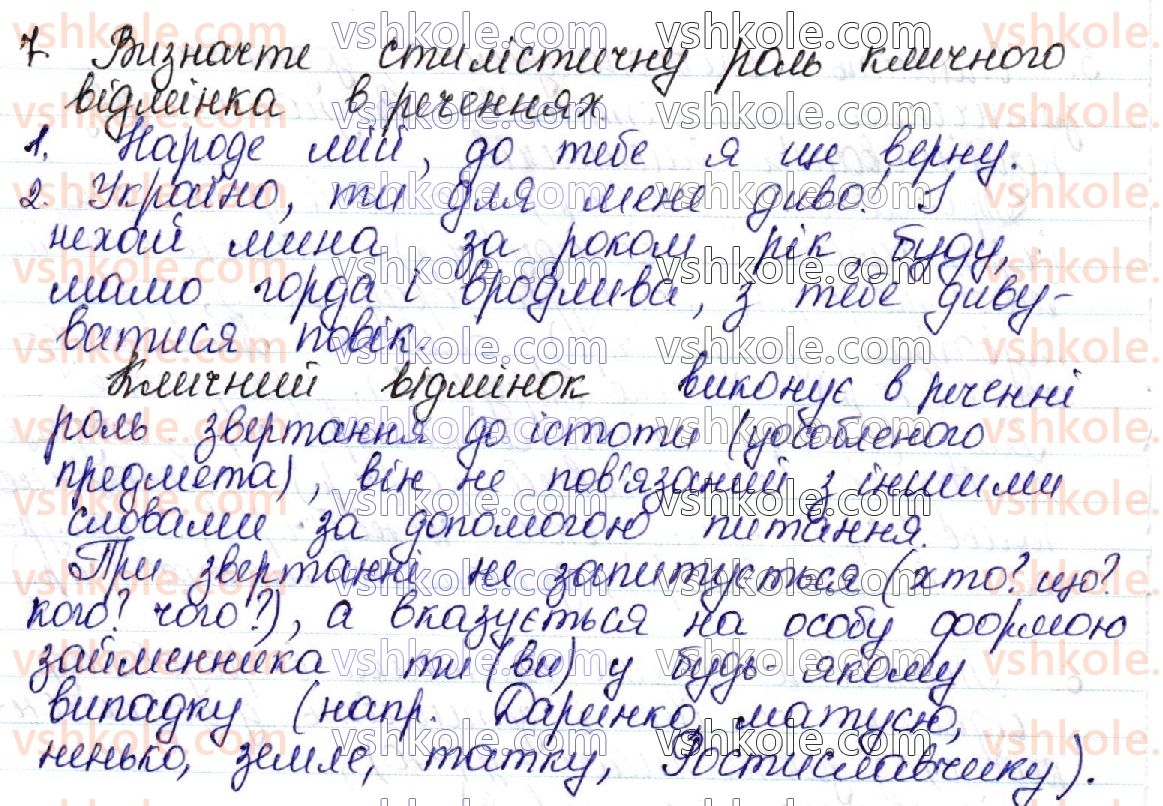 7. Визначте стилістичну роль кличного
відмінка в реченнях.
1. Народе мій, до тебе я ще верну.
2. Україно, ти для мене диво! І
нехай мина за роком рік, буду,
мамо горда і вродлива, з тебе диву-
ватися повік.
Кличний відмінок виконує в реченні
роль звертання до істоти (уособленого
предмета), він не пов'язаний з іншими
словами за допомогою питання.
При звертанні не запитується (хто? що?
кого? чого?), а вказується на особу формою
займенника ти (ви) у будь-якому
випадку (напр. Даринко, матусю,
ненько, земле, татку, Ростиславчику).